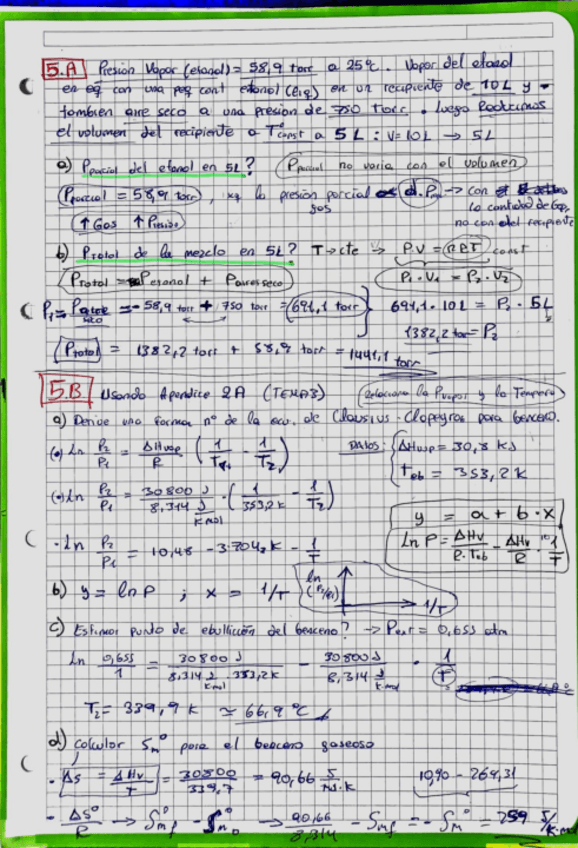 5.A Presión Vapor (etanol) = 58,9 torr a 25°C. Vapor del etanol
en eq con una peq cant etanol (liq) en un recipiente de 10L y
tambien aire seco a una presion de 750 Torr. Luego Reducimos
el volumen del recipiente a T const a 5L : V=10L → 5L
a) Pparcial del etanol en 5L? Pparcial no varia con el volumen
Pparcial = 58,9 torr, la presión parcial d. P → con
gas la cantidad de Gas,
↑ Gas ↑ Presión no con el del recipiente
b) Ptotal de la mezcla en 5L? T → cte ⇒ P.V = n.R.T const
Ptotal = Petanol + Paire seco P₁ . V₁ = P₂ . V₂
P₁ = Paire seco = - 58,9 torr + 750 torr = 691,1 torr 691,1 . 10L = P₂ . 5L
1382,2 torr = P₂
Ptotal = 1382,2 torr + 58,9 torr = 1441,1 torr
5.B Usando Apendice 2A (TEMA3) Relaciona la Pvapor y la Tempera
a) Derive una forma nº de la ecu. de Clausius-Clapeyron para benceno.
(•) Ln P₂/P₁ = ΔHvap/R (1/T₁ - 1/T₂) DATOS: ΔHvap = 30,8 kJ
Teb = 353,2 K
(•) Ln P₂/P₁ = 30800 J / 8,314 J/K mol . (1/353,2 K - 1/T₂)
y = a + b . x
• Ln P₂/P₁ = 10,48 - 3704,2 K - 1/T Ln P = ΔHv/R.Teb - ΔHv/R . 1/T
b) y = ln P ; x = 1/T ln (P₂/P₁) 1/T
c) Estimar punto de ebullición del benceno? → Pext = 0,655 atm
Ln 0,655/1 = 30800 J / 8,314 J/K mol . 353,2 K - 30800 J / 8,314 J/K mol . 1/T
T₂ = 339,9 K ≃ 66,9 °C
d) Calcular Sm° para el benceno gaseoso
• ΔS = ΔHv/T = 30800/339,7 = 90,66 J/mol.K 10,90 - 269,31
- ΔS°/R → Smf° - Sm₀° → 90,66/8,314 - Smf = - Sm° = 259 J/K.mol